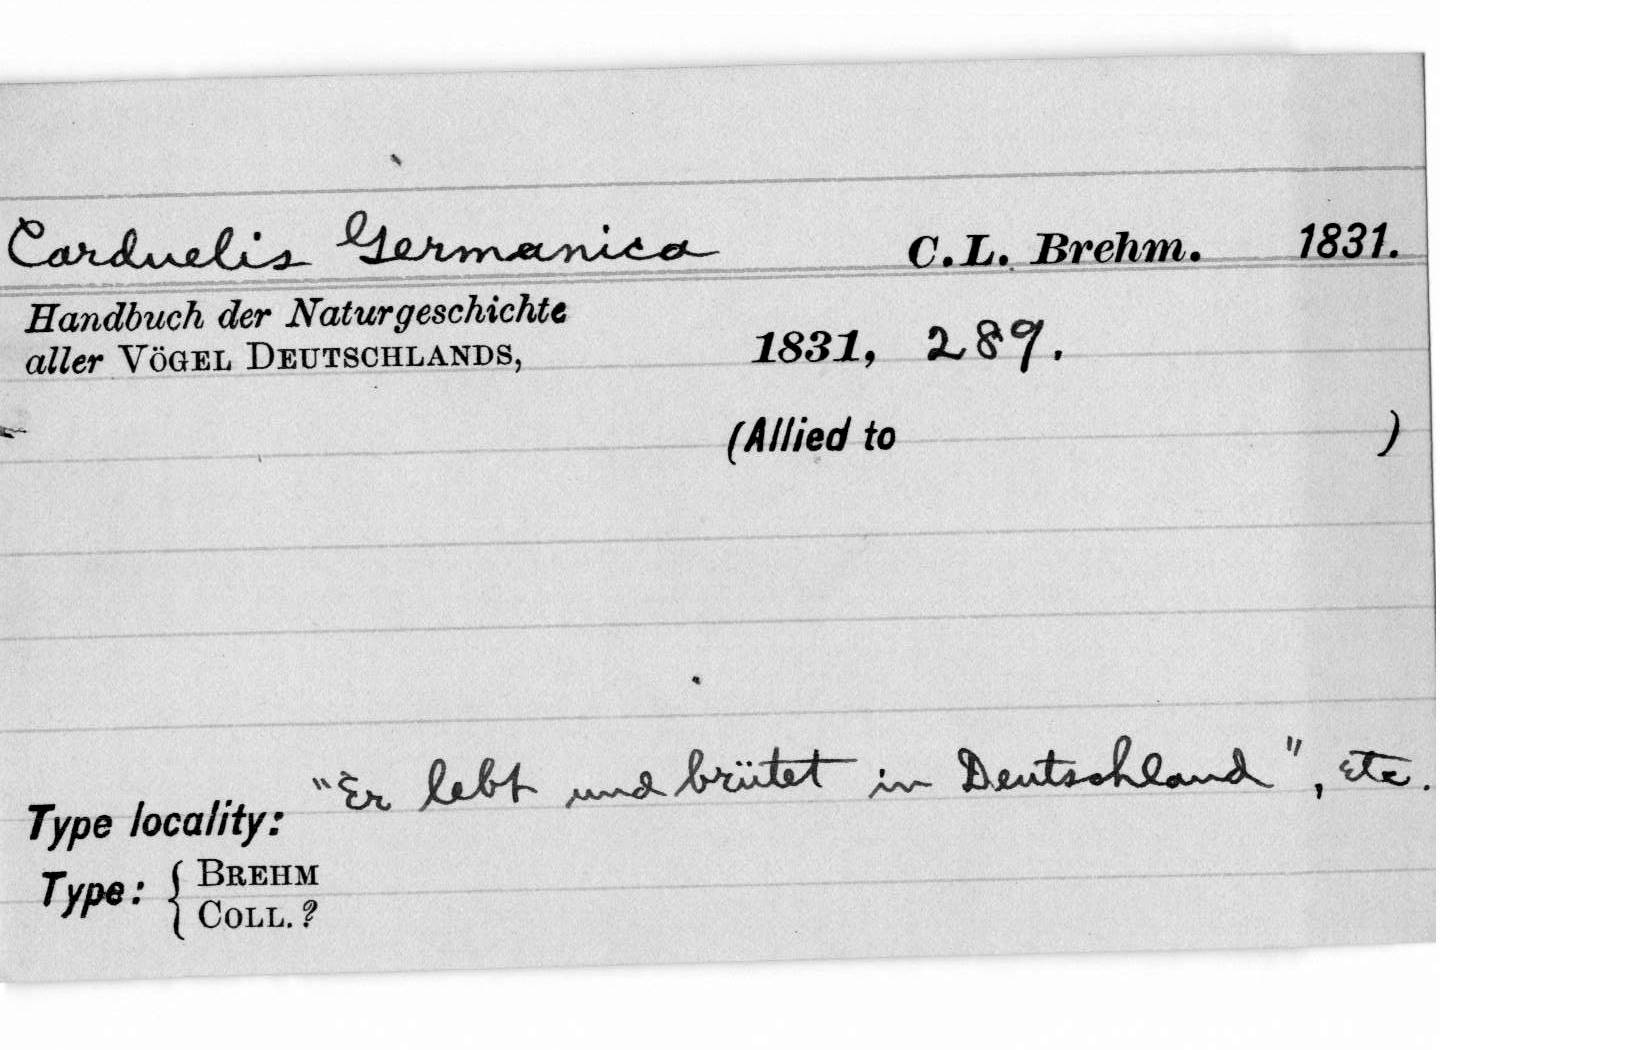 Carduelis Germanica C. L. Brehm. 1831.
Handbuch der Naturgeschichte
aller VÖGEL DEUTSCHLANDS, 1831, 289.
(Allied to )
Type locality: "Er lebt und brütet in Deutschland", etc.
Type: { BREHM
COLL. ?